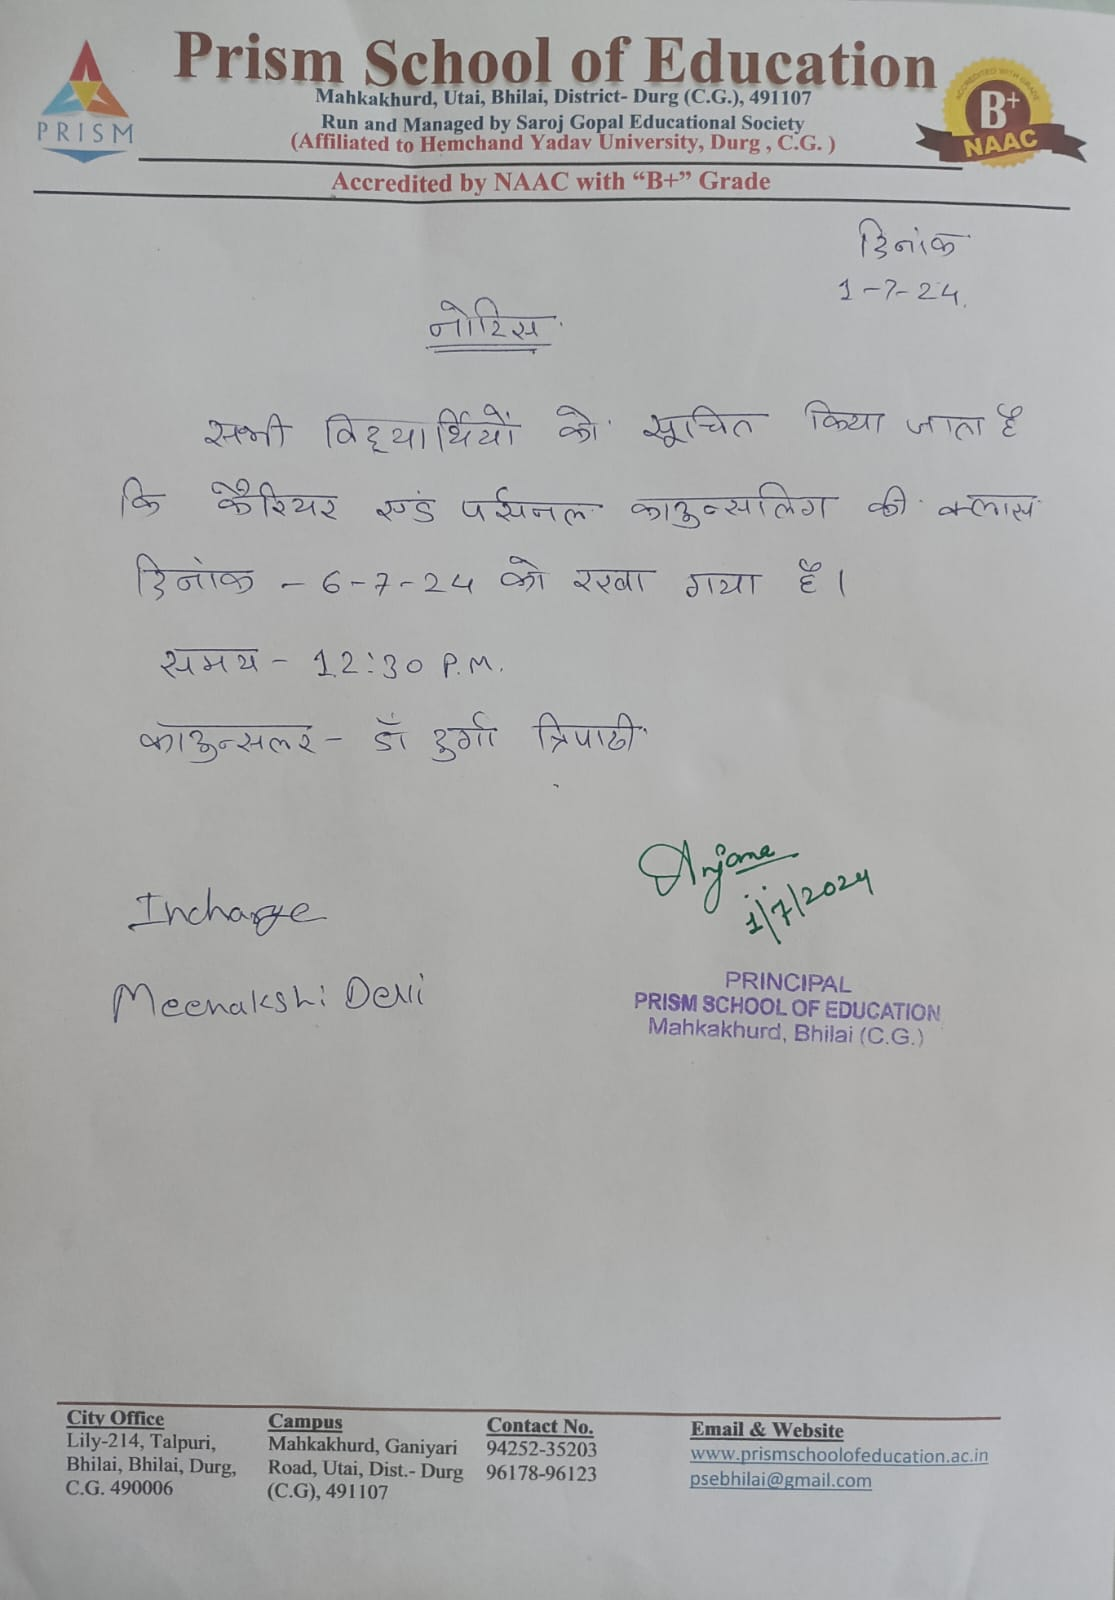 Prism School of Education
Mahkakhurd, Utai, Bhilai, District- Durg (C.G.), 491107
Run and Managed by Saroj Gopal Educational Society
(Affiliated to Hemchand Yadav University, Durg , C.G. )
Accredited by NAAC with “B+” Grade
PRISM
ACCREDITED WITH GRADE
B+
NAAC
दिनांक
1-7-24.
नोटिस
सभी विद्यार्थियों को सूचित किया जाता है
कि कैरियर एण्ड पर्सनल काउन्सलिंग की क्लास
दिनांक - 6-7-24 को रखा गया है।
समय - 12:30 P.M.
काउन्सलर - डॉ दुर्गा त्रिपाठी
Incharge
Meenakshi Devi
Anjana
1/7/2024
PRINCIPAL
PRISM SCHOOL OF EDUCATION
Mahkakhurd, Bhilai (C.G.)
City Office
Lily-214, Talpuri,
Bhilai, Bhilai, Durg,
C.G. 490006
Campus
Mahkakhurd, Ganiyari
Road, Utai, Dist.- Durg
(C.G), 491107
Contact No.
94252-35203
96178-96123
Email & Website
www.prismschoolofeducation.ac.in
psebhilai@gmail.com